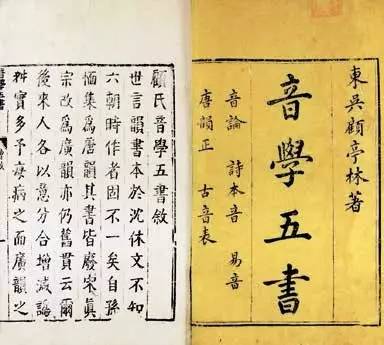 東吳顧亭林著
音學五書
音論 詩本音 易音
唐韻正 古音表
顧氏音學五書敘
世言韻書本於沈休文不知
六朝時作者固不一矣自孫
愐集爲唐韻其書皆廢宋眞
宗改爲廣韻亦仍舊貫云爾
後來人各以意分合增減譌
舛實多予病之而廣韻之